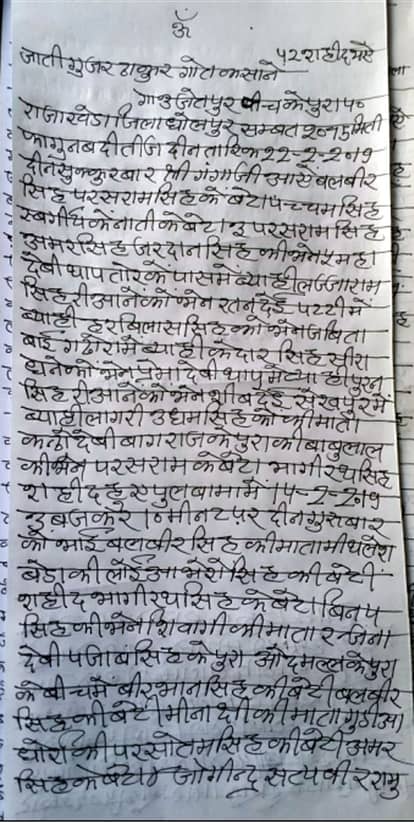 ॐ
५२ शहीद भऐ
जाती गुजर ठाकुर गोत कसाने
गाउ जेतपुर बीचकेपुरा प०
राजाखेडा जिला धौलपुर सम्बत २०१५ मिती
फागुन बदी तीज दीन तारिक 22-2-२०१९
दीन सुक्कुरबार श्री गंगाजी आऐ बलबीर
सिंह परसराम सिंह के बेटा पच्चम सिंह
स्बर्गीय के नाती के बेटा 3 परसराम सिंह
अमर सिंह जरदान सिंह की भेन महा
देबी थाप तोर के पास मे ब्याही लज्जाराम
सिंह रीआने को भेन रतन देई पट्टी में
ब्याही हरबिलास सिंह को भेन जबिता
बाई गढी रामे ब्याही केदार सिंह
को भेन प्रेमा देबी ब्याही पुरन
सिंह रीआने को भेन श्रीबदेई सेखपुर में
ब्याही लागरी उधम सिंह को की माता
देबी बाग राज के पुरा की बाबुलाल
की भेन परसराम के बेटा भागीरथ सिंह
शहीद हुऐ पुलबामा में 14-2-2०१९
3 बज कर 1० मीनट पर दीन गुरुबार
को भाई बलबीर सिंह की माता मीथलेश
की लोई आ भेरो सिंह की बेटी
शहीद भागीरथ सिंह के बेटा बिनय
सिंह की भेन शिवागी की माता रन्जना
देबी पंजाब सिंह के पुरा ओदमल्ल के पुरा
के बीच में बीरभान सिंह की बेटी बलबीर
सिंह की बेटी मीनाक्षी की माता गुडीआ
की परसोतम सिंह की बेटी अमर
सिंह के बेटा जोगीन्द्र सटपबीर रामु